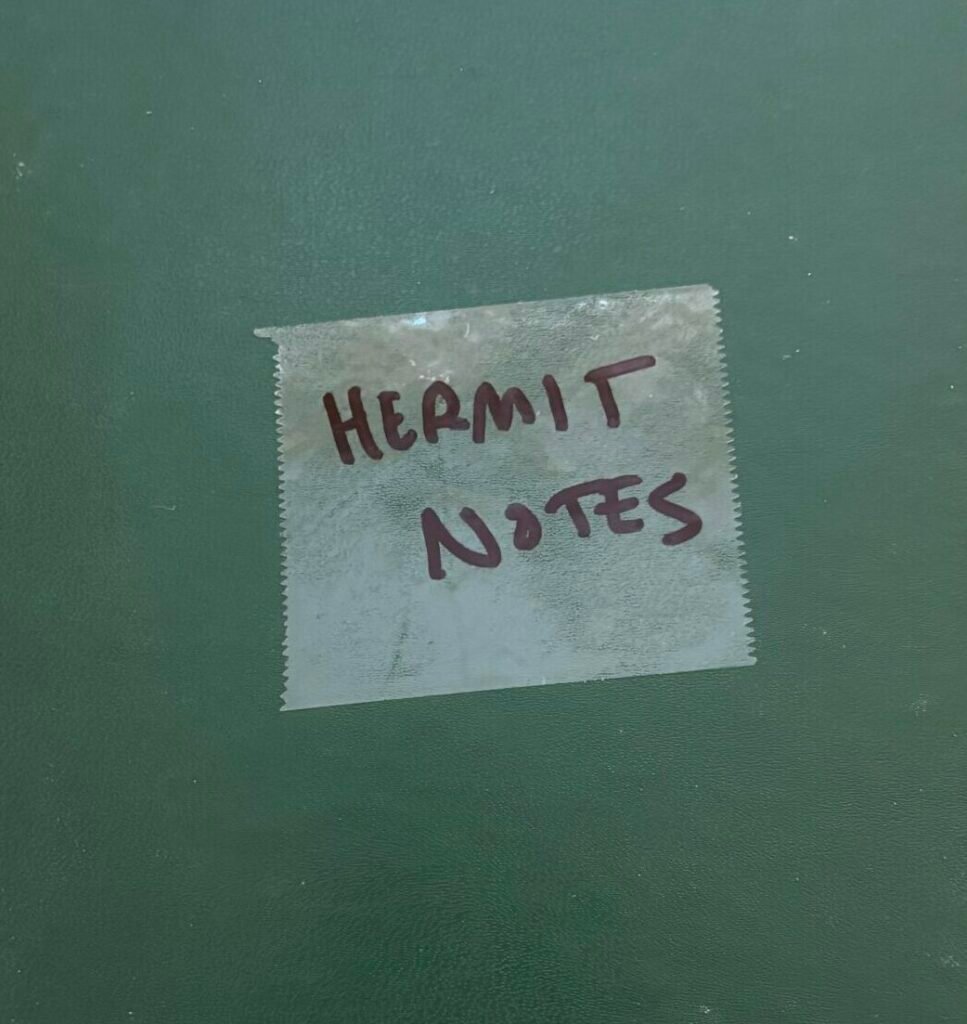 HERMIT
NOTES